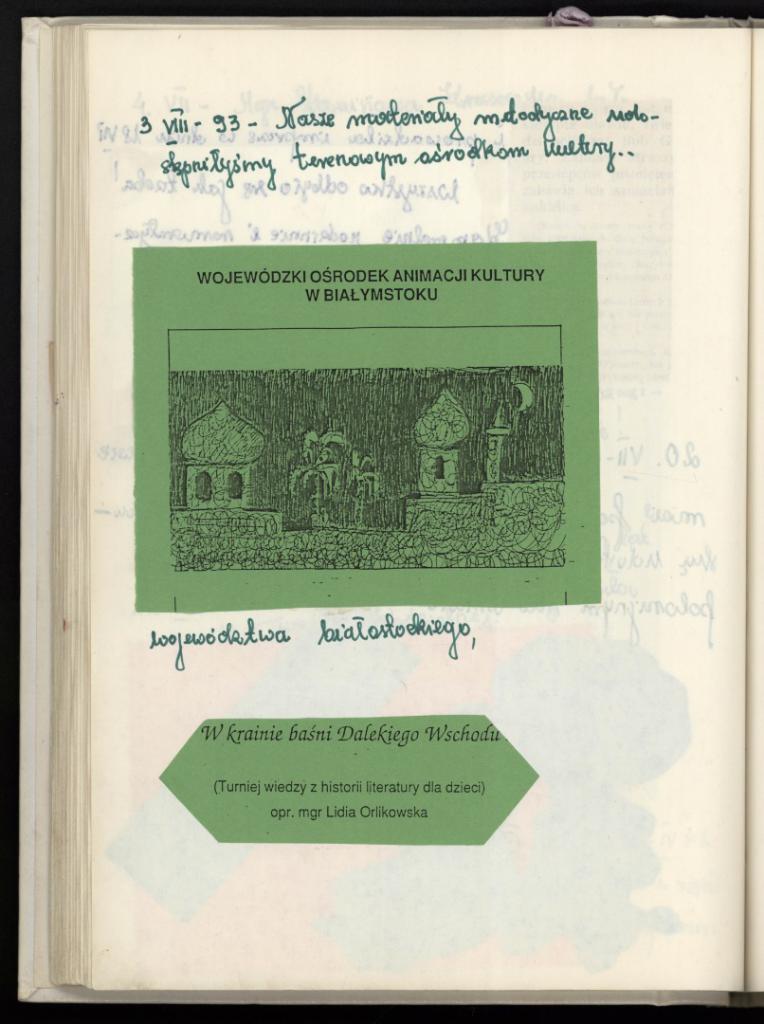 3 VIII - 93 - Nasze materiały metodyczne udo-
stępniłyśmy terenowym ośrodkom kultury..
WOJEWÓDZKI OŚRODEK ANIMACJI KULTURY
W BIAŁYMSTOKU
województwa białostockiego,
W krainie baśni Dalekiego Wschodu
(Turniej wiedzy z historii literatury dla dzieci)
opr. mgr Lidia Orlikowska